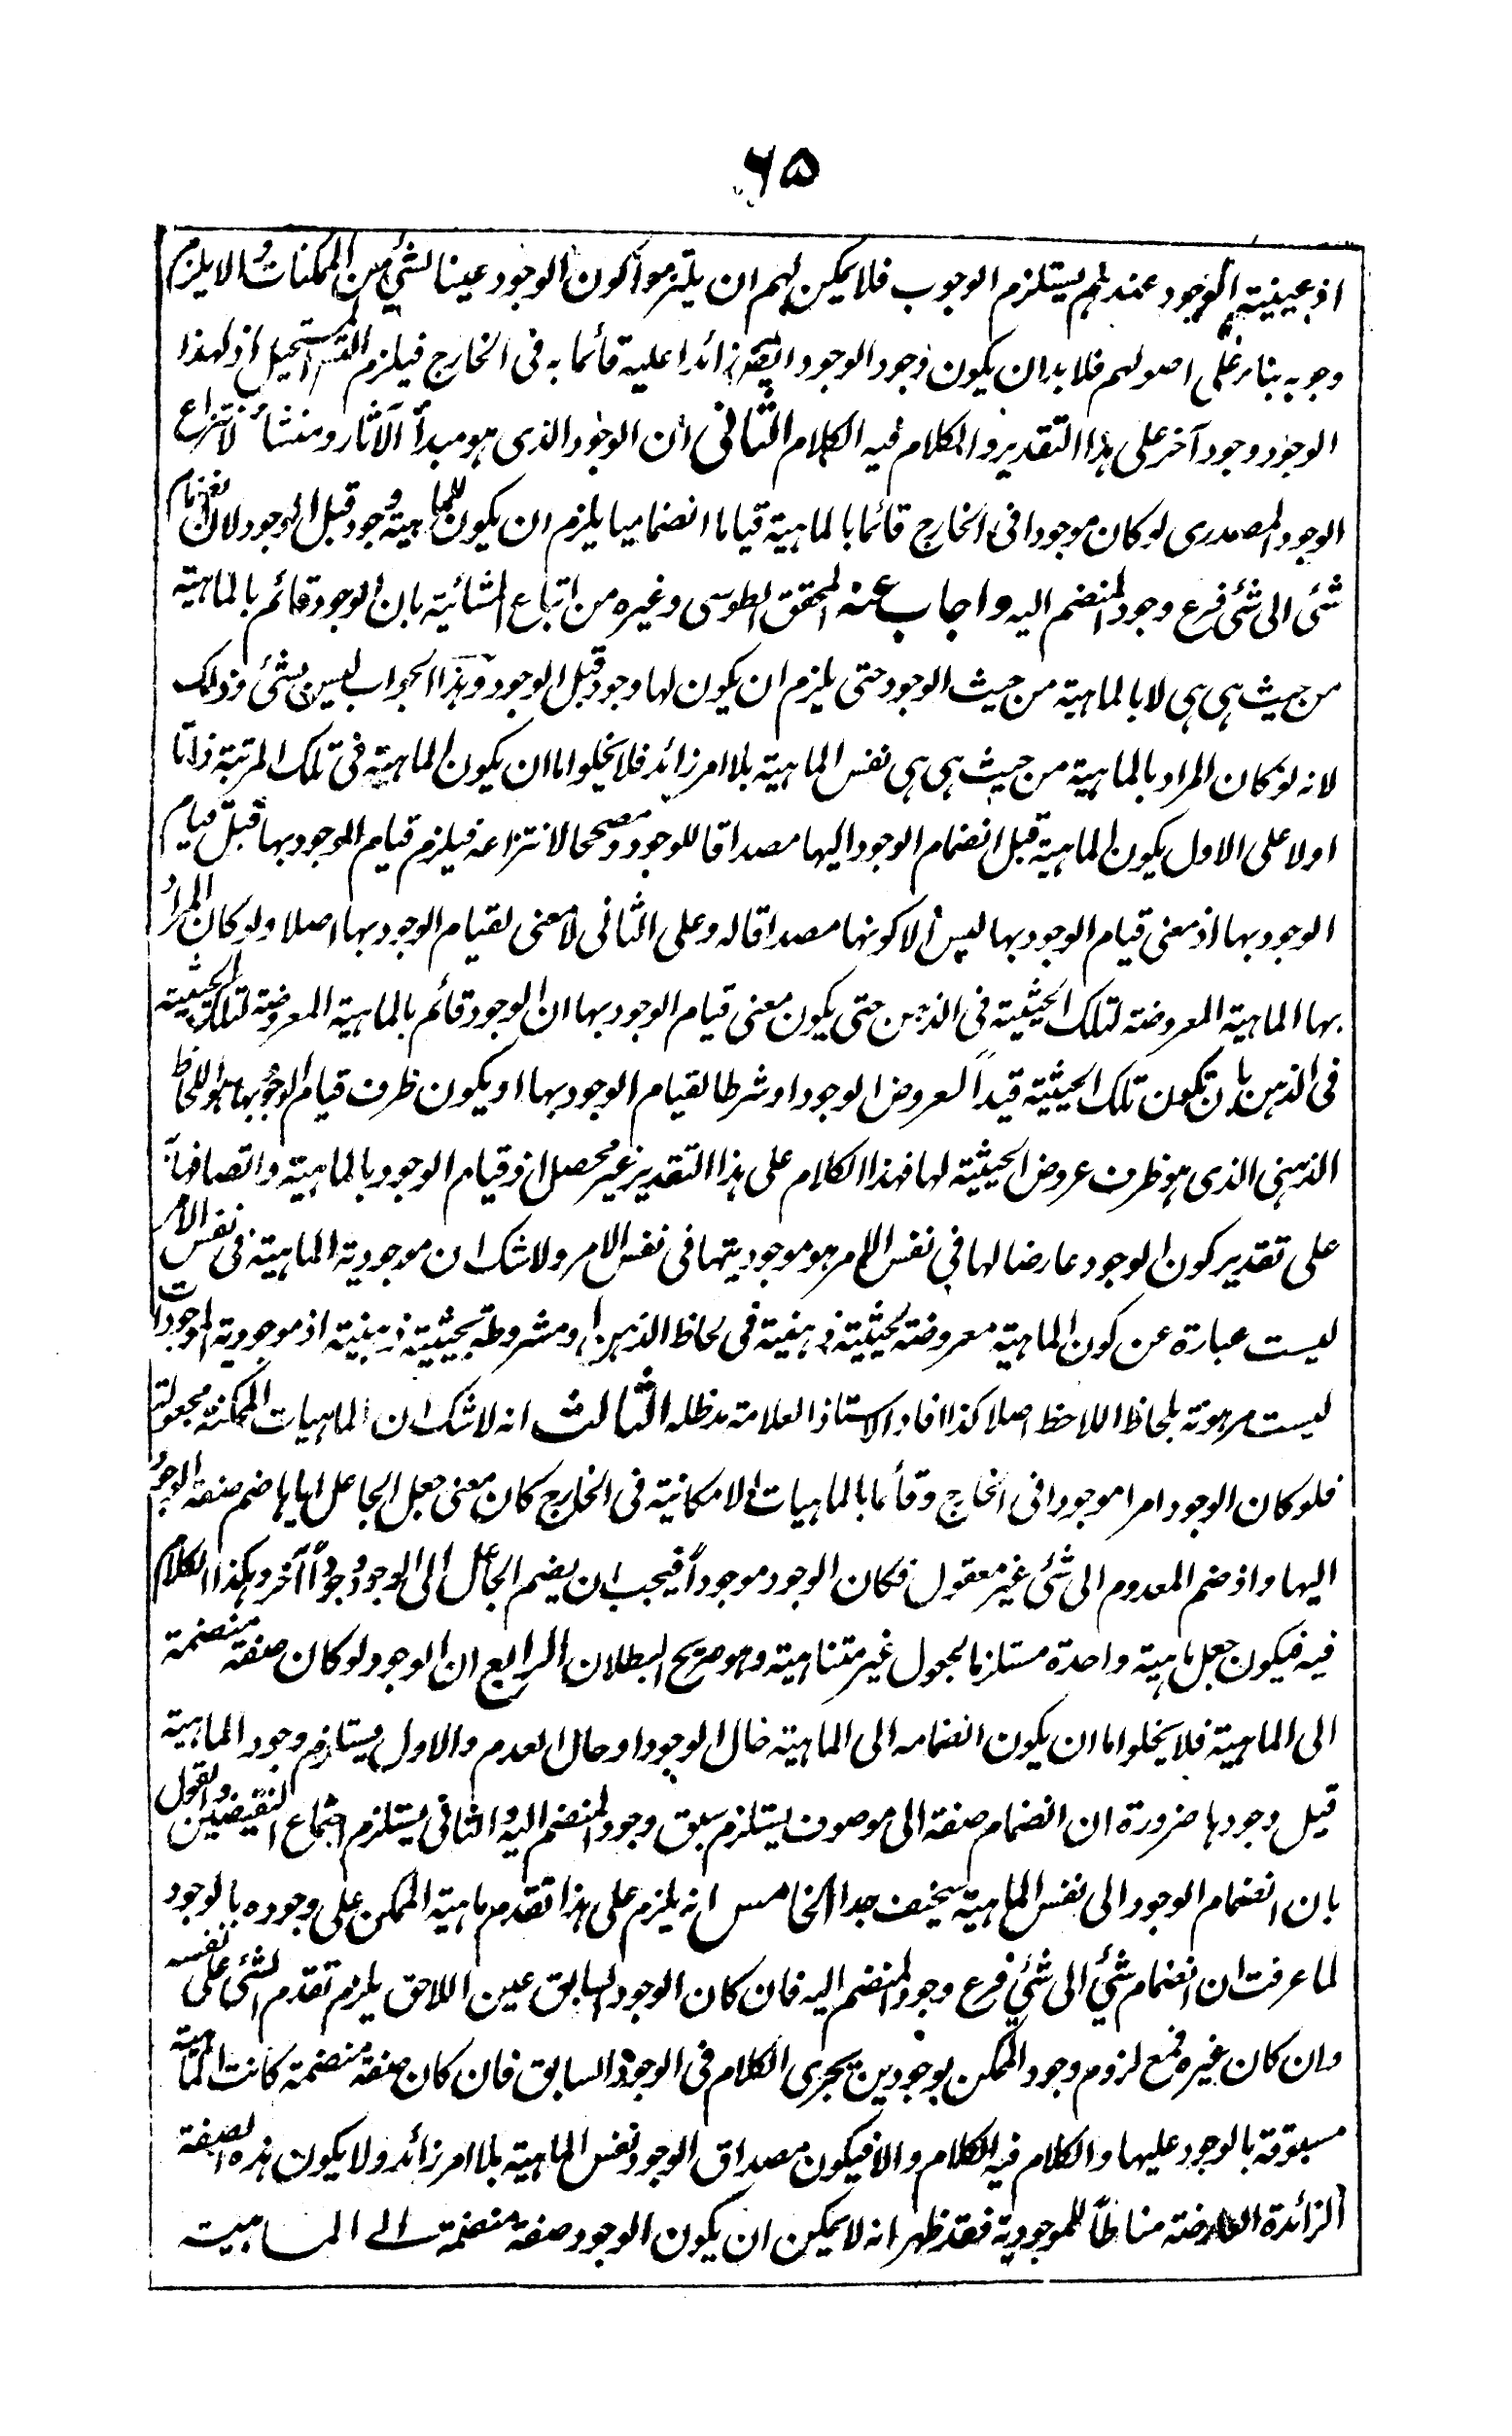 ٦٥
اذ عينية الوجود عندهم يستلزم الوجوب فلا يمكن لهم ان يلتزموا كون الوجود عينا لشئ من الممكنات والا يلزم
وجوبه بناء على اصولهم فلا بد ان يكون وجود الوجود ايضا زائدا عليه قائما به فى الخارج فيلزم التس المستحيل اذ لهذا
الوجود وجود آخر على هذا التقدير والكلام فيه الكلام الثانى ان الوجود الذى هو مبدأ الآثار ومنشأ لانتزاع
الوجود المصدرى لو كان موجودا فى الخارج قائما بالماهية قياما انضماميا يلزم ان يكون للماهية وجود قبل الوجود لان انضمام
شئ الى شئ فرع وجود المنضم اليه واجاب عنه المحقق الطوسى وغيره من اتباع المشائية بان الوجود قائم بالماهية
من حيث هى هى لا بالماهية من حيث الوجود حتى يلزم ان يكون لها وجود قبل الوجود وهذا الجواب ليس بشئ وذلك
لانه لو كان المراد بالماهية من حيث هى هى نفس الماهية بلا امر زائد فلا يخلوا ما ان يكون الماهية فى تلك المرتبة ذاتا
اولا على الاول يكون الماهية قبل انضمام الوجود اليها مصداقا للوجود ومصححا لانتزاعه فيلزم قيام الوجود بها قبل قيام
الوجود بها اذ معنى قيام الوجود بها ليس الا كونها مصداقا له وعلى الثانى لا معنى لقيام الوجود بها اصلا ولو كان المراد
بها الماهية المعروضة لتلك الحيثية فى الذهن حتى يكون معنى قيام الوجود بها ان الوجود قائم بالماهية المعروضة لتلك الحيثية
فى الذهن بان تكون تلك الحيثية قيدا لعروض الوجود او شرطا لقيام الوجود بها او يكون ظرف قيام الوجود بها هو اللحاظ
الذهنى الذى هو ظرف عروض الحيثية لها فهذا الكلام على هذا التقدير غير محصل اذ قيام الوجود بالماهية واتصافها به
على تقدير كون الوجود عارضا لها فى نفس الامر هو موجوديتها فى نفس الامر ولا شك ان موجودية الماهية فى نفس الامر
ليست عبارة عن كون الماهية معروضة لحيثية ذهنية فى لحاظ الذهن او مشروطة بحيثية ذهنية اذ موجودية الموجودات
ليست مرهونة بلحاظ اللاحظ اصلا كذا افاد الاستاذ العلامة مد ظله الثالث انه لا شك ان الماهيات الممكنة مجعولة
فلو كان الوجود امرا موجودا فى الخارج وقائما بالماهيات الامكانية فى الخارج كان معنى جعل الجاعل اياها ضم صفة الوجود
اليها واذ ضم المعدوم الى شئ غير معقول فكان الوجود موجودا فيجب ان يضم الجاعل الى الوجود وجودا آخر وهكذا الكلام
فيه فيكون جعل ماهية واحدة مستلزما لجعول غير متناهية وهو صريح البطلان الرابع ان الوجود لو كان صفة منضمة
الى الماهية فلا يخلوا ما ان يكون انضمامه الى الماهية حال الوجود او حال العدم والاول يستلزم وجود الماهية
قبل وجودها ضرورة ان انضمام صفة الى موصوف يستلزم سبق وجود المنضم اليه والثانى يستلزم اجتماع النقيضين والقول
بان انضمام الوجود الى نفس الماهية سخيف جدا الخامس انه يلزم على هذا تقدم ماهية الممكن على وجوده بالوجود
لما عرفت ان انضمام شئ الى شئ فرع وجود المنضم اليه فان كان الوجود السابق عين اللاحق يلزم تقدم الشئ على نفسه
وان كان غيره فمع لزوم وجود الممكن بوجودين يجرى الكلام فى الوجود السابق فان كان صفة منضمة كانت الماهية
مسبوقة بالوجود عليها والكلام فيه الكلام والا فيكون مصداق الوجود نفس الماهية بلا امر زائد ولا يكون هذه الصفة
الزائدة العارضة مناطا للموجودية فقد ظهر انه لا يمكن ان يكون الوجود صفة منضمة الى الماهية